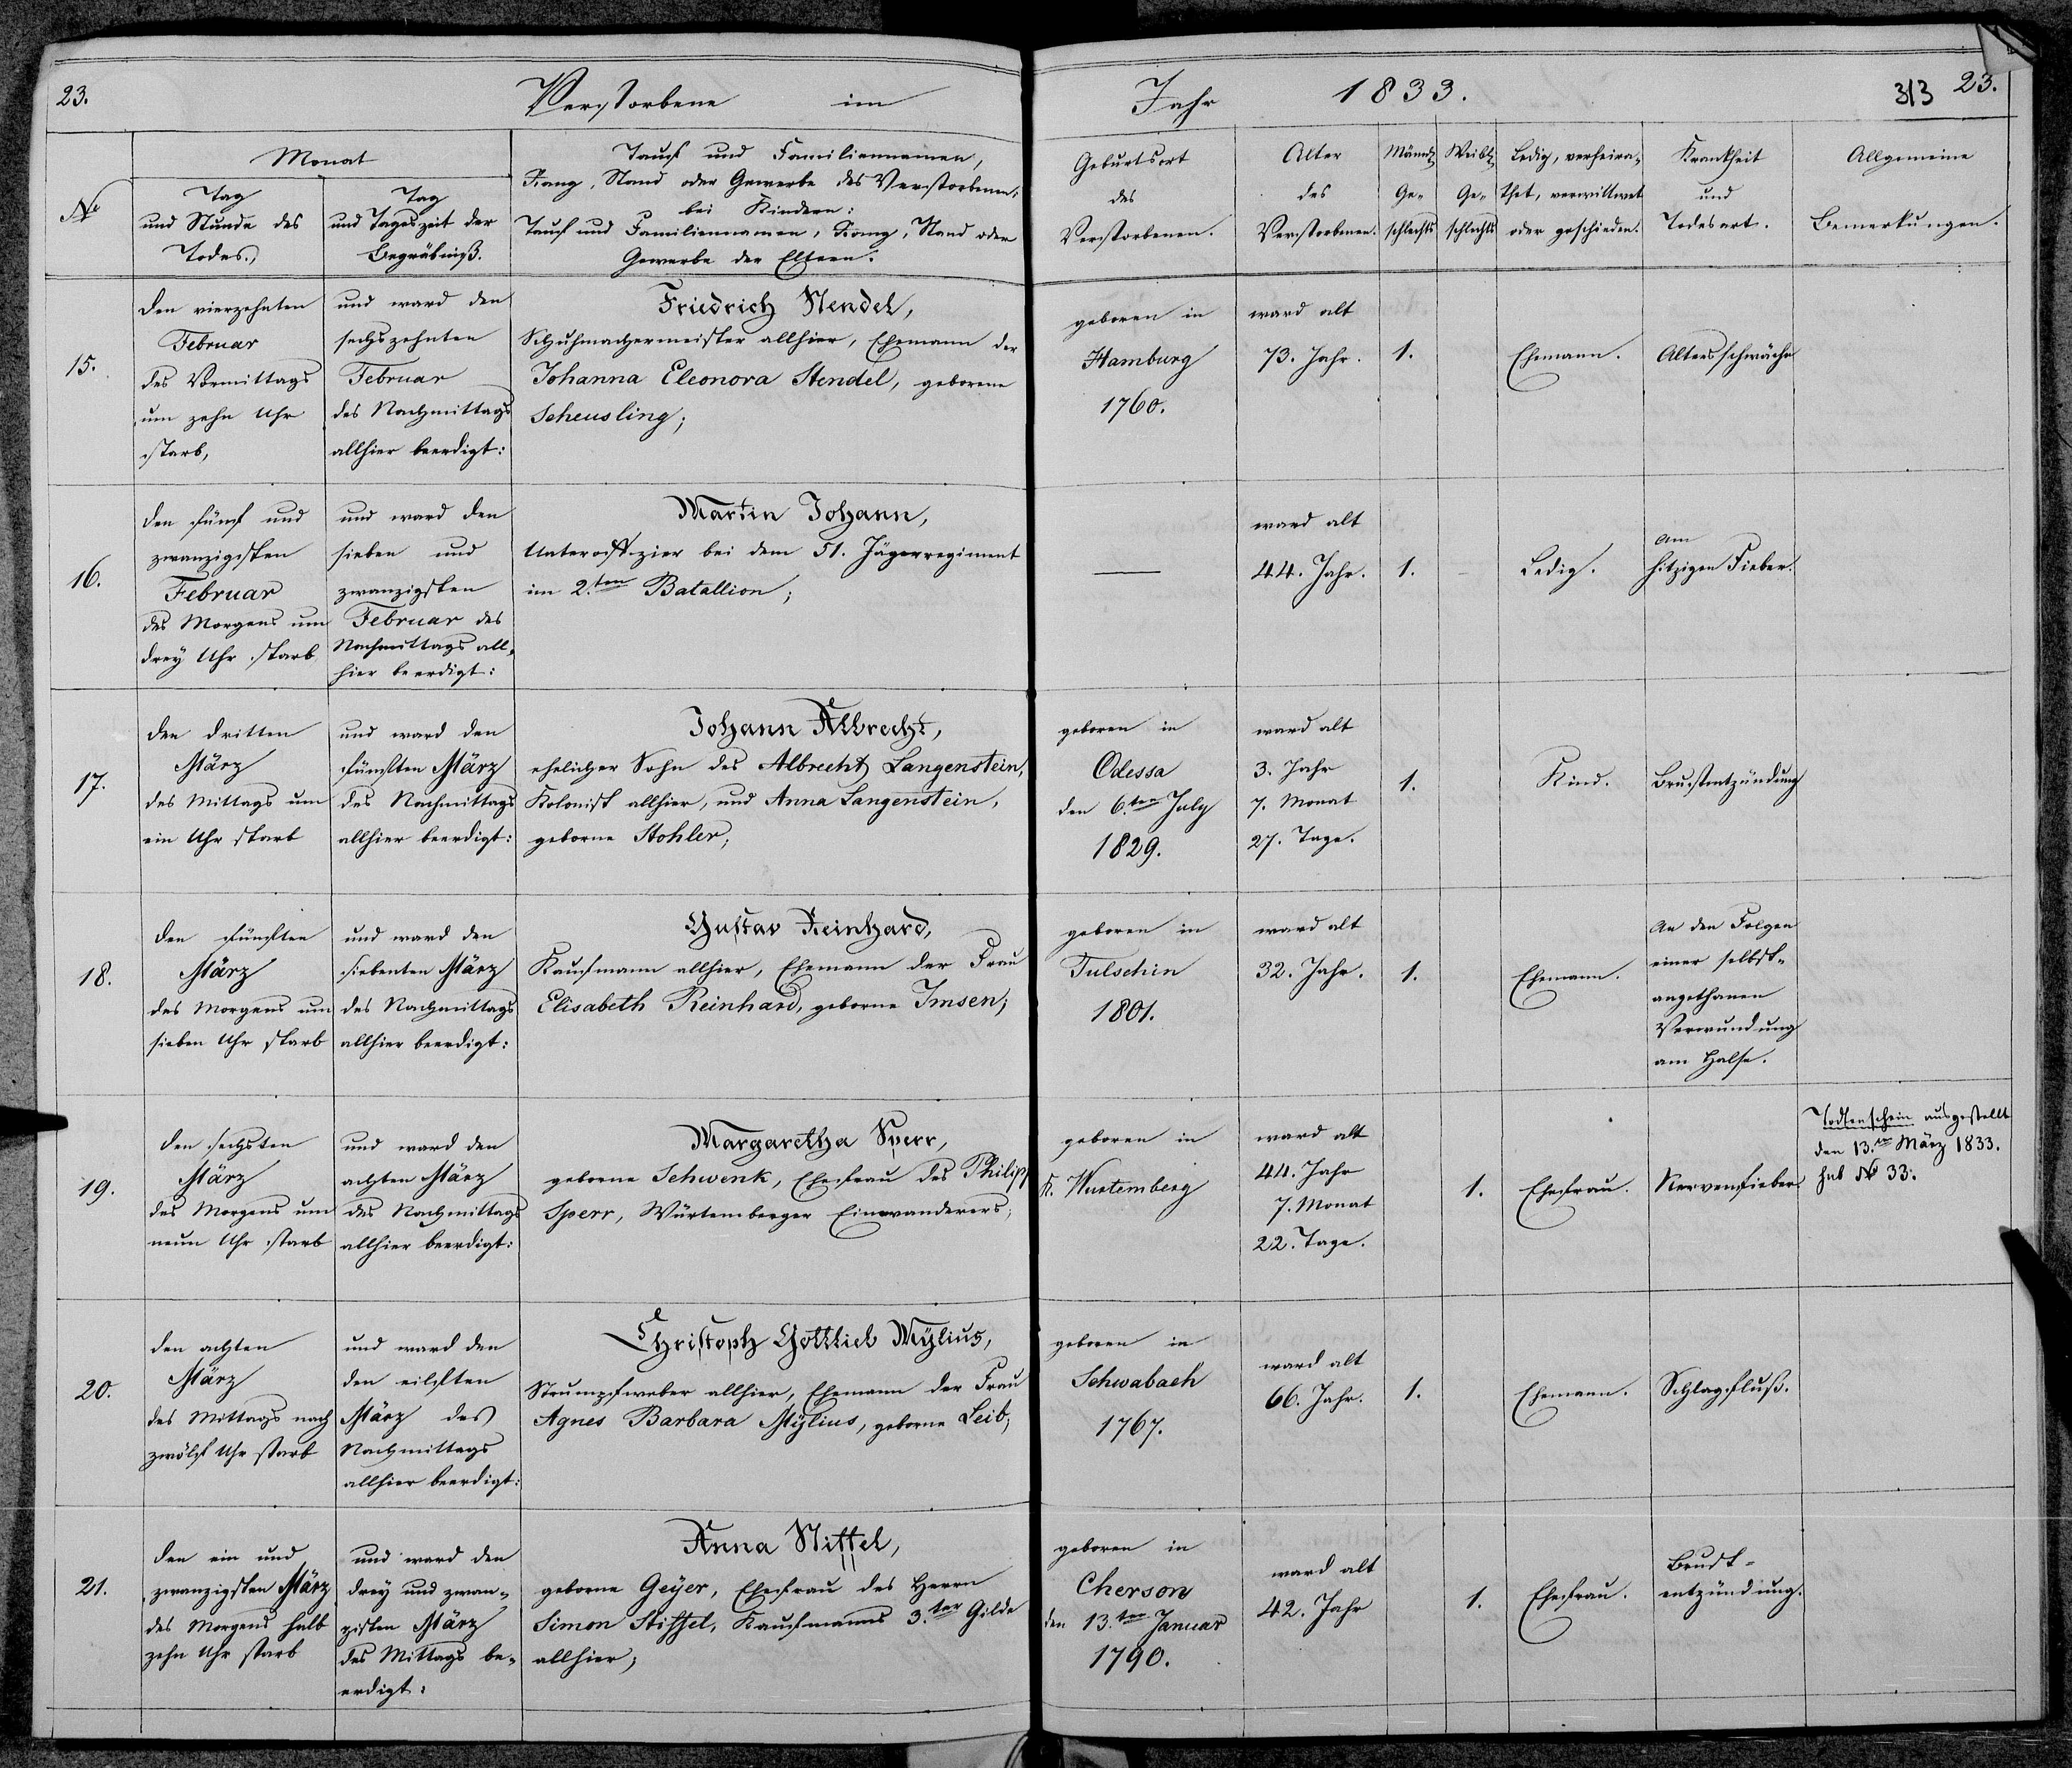 23.
Verstorbene im
Jahr 1833.
313 23.
No
Monat
Tag
und Stunde des
Todes.
Tag
und Tageszeit der
Begräbniß.
Tauf und Familiennamen,
Rang, Stand oder Gewerbe des Verstorbenen;
bei Kindern:
Tauf und Familiennamen, Rang, Stand oder
Gewerbe der Eltern.
Geburtsort
des
Verstorbenen.
Alter
des
Verstorbenen.
Männl.
Ge-
schlechts
Weibl.
Ge-
schlechts
Ledig, verheira-
thet, verwittwet
oder geschieden.
Krankheit
und
Todesart.
Allgemeine
Bemerkungen.
15.
den vierzehnten
Februar
des Vormittags
um zehn Uhr
starb,
und ward den
sechszehnten
Februar
des Nachmittags
allhier beerdigt:
Friedrich Stendel,
Schuhmachermeister allhier, Ehemann der
Johanna Eleonora Stendel, geborene
Scheusling;
geboren in
Hamburg
1760.
ward alt
73. Jahr.
1.
Ehemann.
Altersschwäche
16.
den fünf und
zwanzigsten
Februar
des Morgens um
drey Uhr starb
und ward den
sieben und
zwanzigsten
Februar des
Nachmittags all-
hier beerdigt:
Martin Johann,
Unteroffizier bei dem 51. Jägerregiment
im 2.ten Batallion;
—
ward alt
44. Jahr.
1.
Ledig.
am
hitzigen Fieber.
17.
den dritten
März
des Mittags um
ein Uhr starb
und ward den
fünften März
des Nachmittags
allhier beerdigt:
Johann Albrecht,
ehelicher Sohn des Albrecht Langenstein,
Kolonist allhier, und Anna Langenstein,
geborne Stohler;
geboren in
Odessa
den 6.ten July
1829.
ward alt
3. Jahr
7. Monat
27. Tage.
1.
Kind.
Brustentzündung
18.
den fünften
März
des Morgens um
sieben Uhr starb
und ward den
siebenten März
des Nachmittags
allhier beerdigt:
Gustav Reinhard,
Kaufmann allhier, Ehemann der Frau
Elisabeth Reinhard, geborne Imsen;
geboren in
Tulschin
1801.
ward alt
32. Jahr.
1.
Ehemann.
An den Folgen
einer selbst-
angethanen
Verwundung
am Halse.
19.
den sechsten
März
des Morgens um
neun Uhr starb
und ward den
achten März
des Nachmittags
allhier beerdigt:
Margaretha Sperr,
geborne Schwenk, Ehefrau des Philipp
Sperr, Würtemberger Einwanderers;
geboren in
K. Wurtemberg
ward alt
44. Jahr
7. Monat
22. Tage.
1.
Ehefrau.
Nervenfieber.
Todtenschein ausgestellt
den 13.ten März 1833.
sub No 33.
20.
den achten
März
des Mittags nach
zwölf Uhr starb
und ward den
den eilften
März des
Nachmittags
allhier beerdigt:
Christoph Gottlieb Mylius,
Strumpfweber allhier, Ehemann der Frau
Agnes Barbara Mylius, geborne Leib;
geboren in
Schwabach
1767.
ward alt
66. Jahr.
1.
Ehemann.
Schlagfluß.
21.
den ein und
zwanzigsten März
des Morgens halb
zehn Uhr starb
und ward den
drey und zwan-
zisten März
des Mittags be-
erdigt:
Anna Stiffel,
geborne Geyer, Ehefrau des Herrn
Simon Stiffel, Kaufmanns 3.ter Gilde
allhier;
geboren in
Cherson
den 13.ten Januar
1790.
ward alt
42. Jahr
1.
Ehefrau.
Brust-
entzündung.